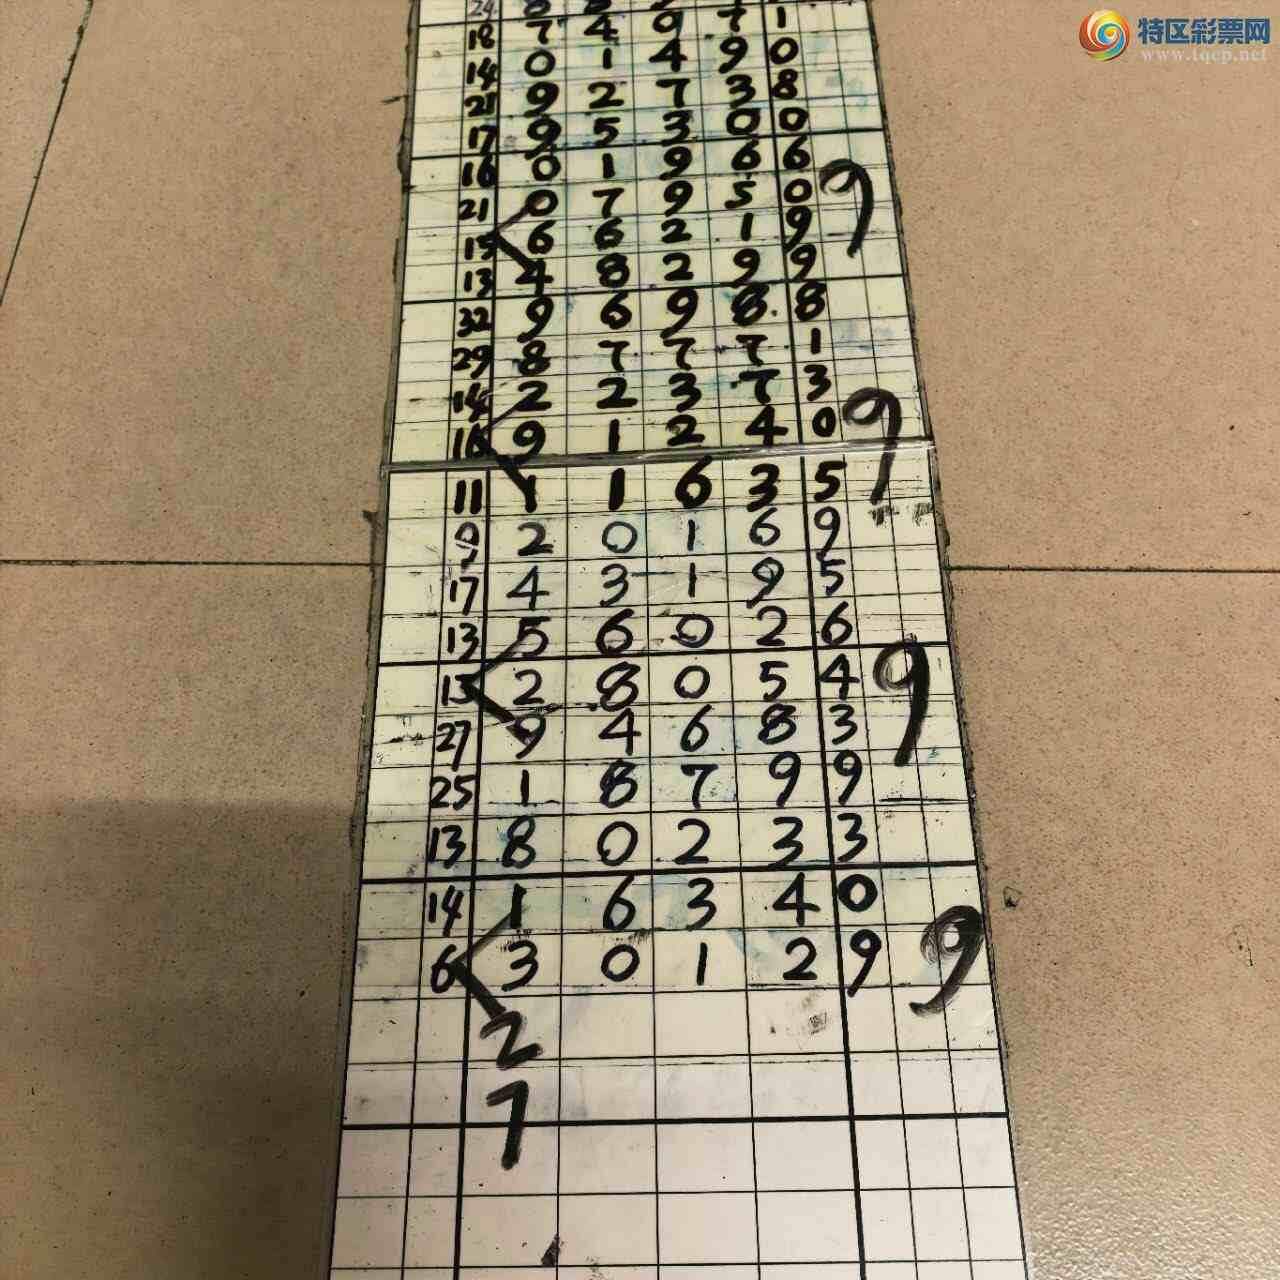 特区彩票网
www.tqcp.net
18 7 4 9 7 1
14 0 1 4 9 0
21 9 2 7 3 8
17 9 5 3 0 0
16 0 1 9 6 6
21 0 7 9 5 0 9
15 6 6 2 1 9
13 4 8 2 9 9
32 9 6 9 8 8
29 8 7 7 7 1
14 2 2 3 7 3
16 9 1 2 4 0 9
11 1 1 6 3 5
9 2 0 1 6 9
17 4 3 1 9 5
13 5 6 0 2 6
15 2 8 0 5 4 9
27 9 4 6 8 3
25 1 8 7 9 9
13 8 0 2 3 3
14 1 6 3 4 0
6 3 0 1 2 9 9
2
7